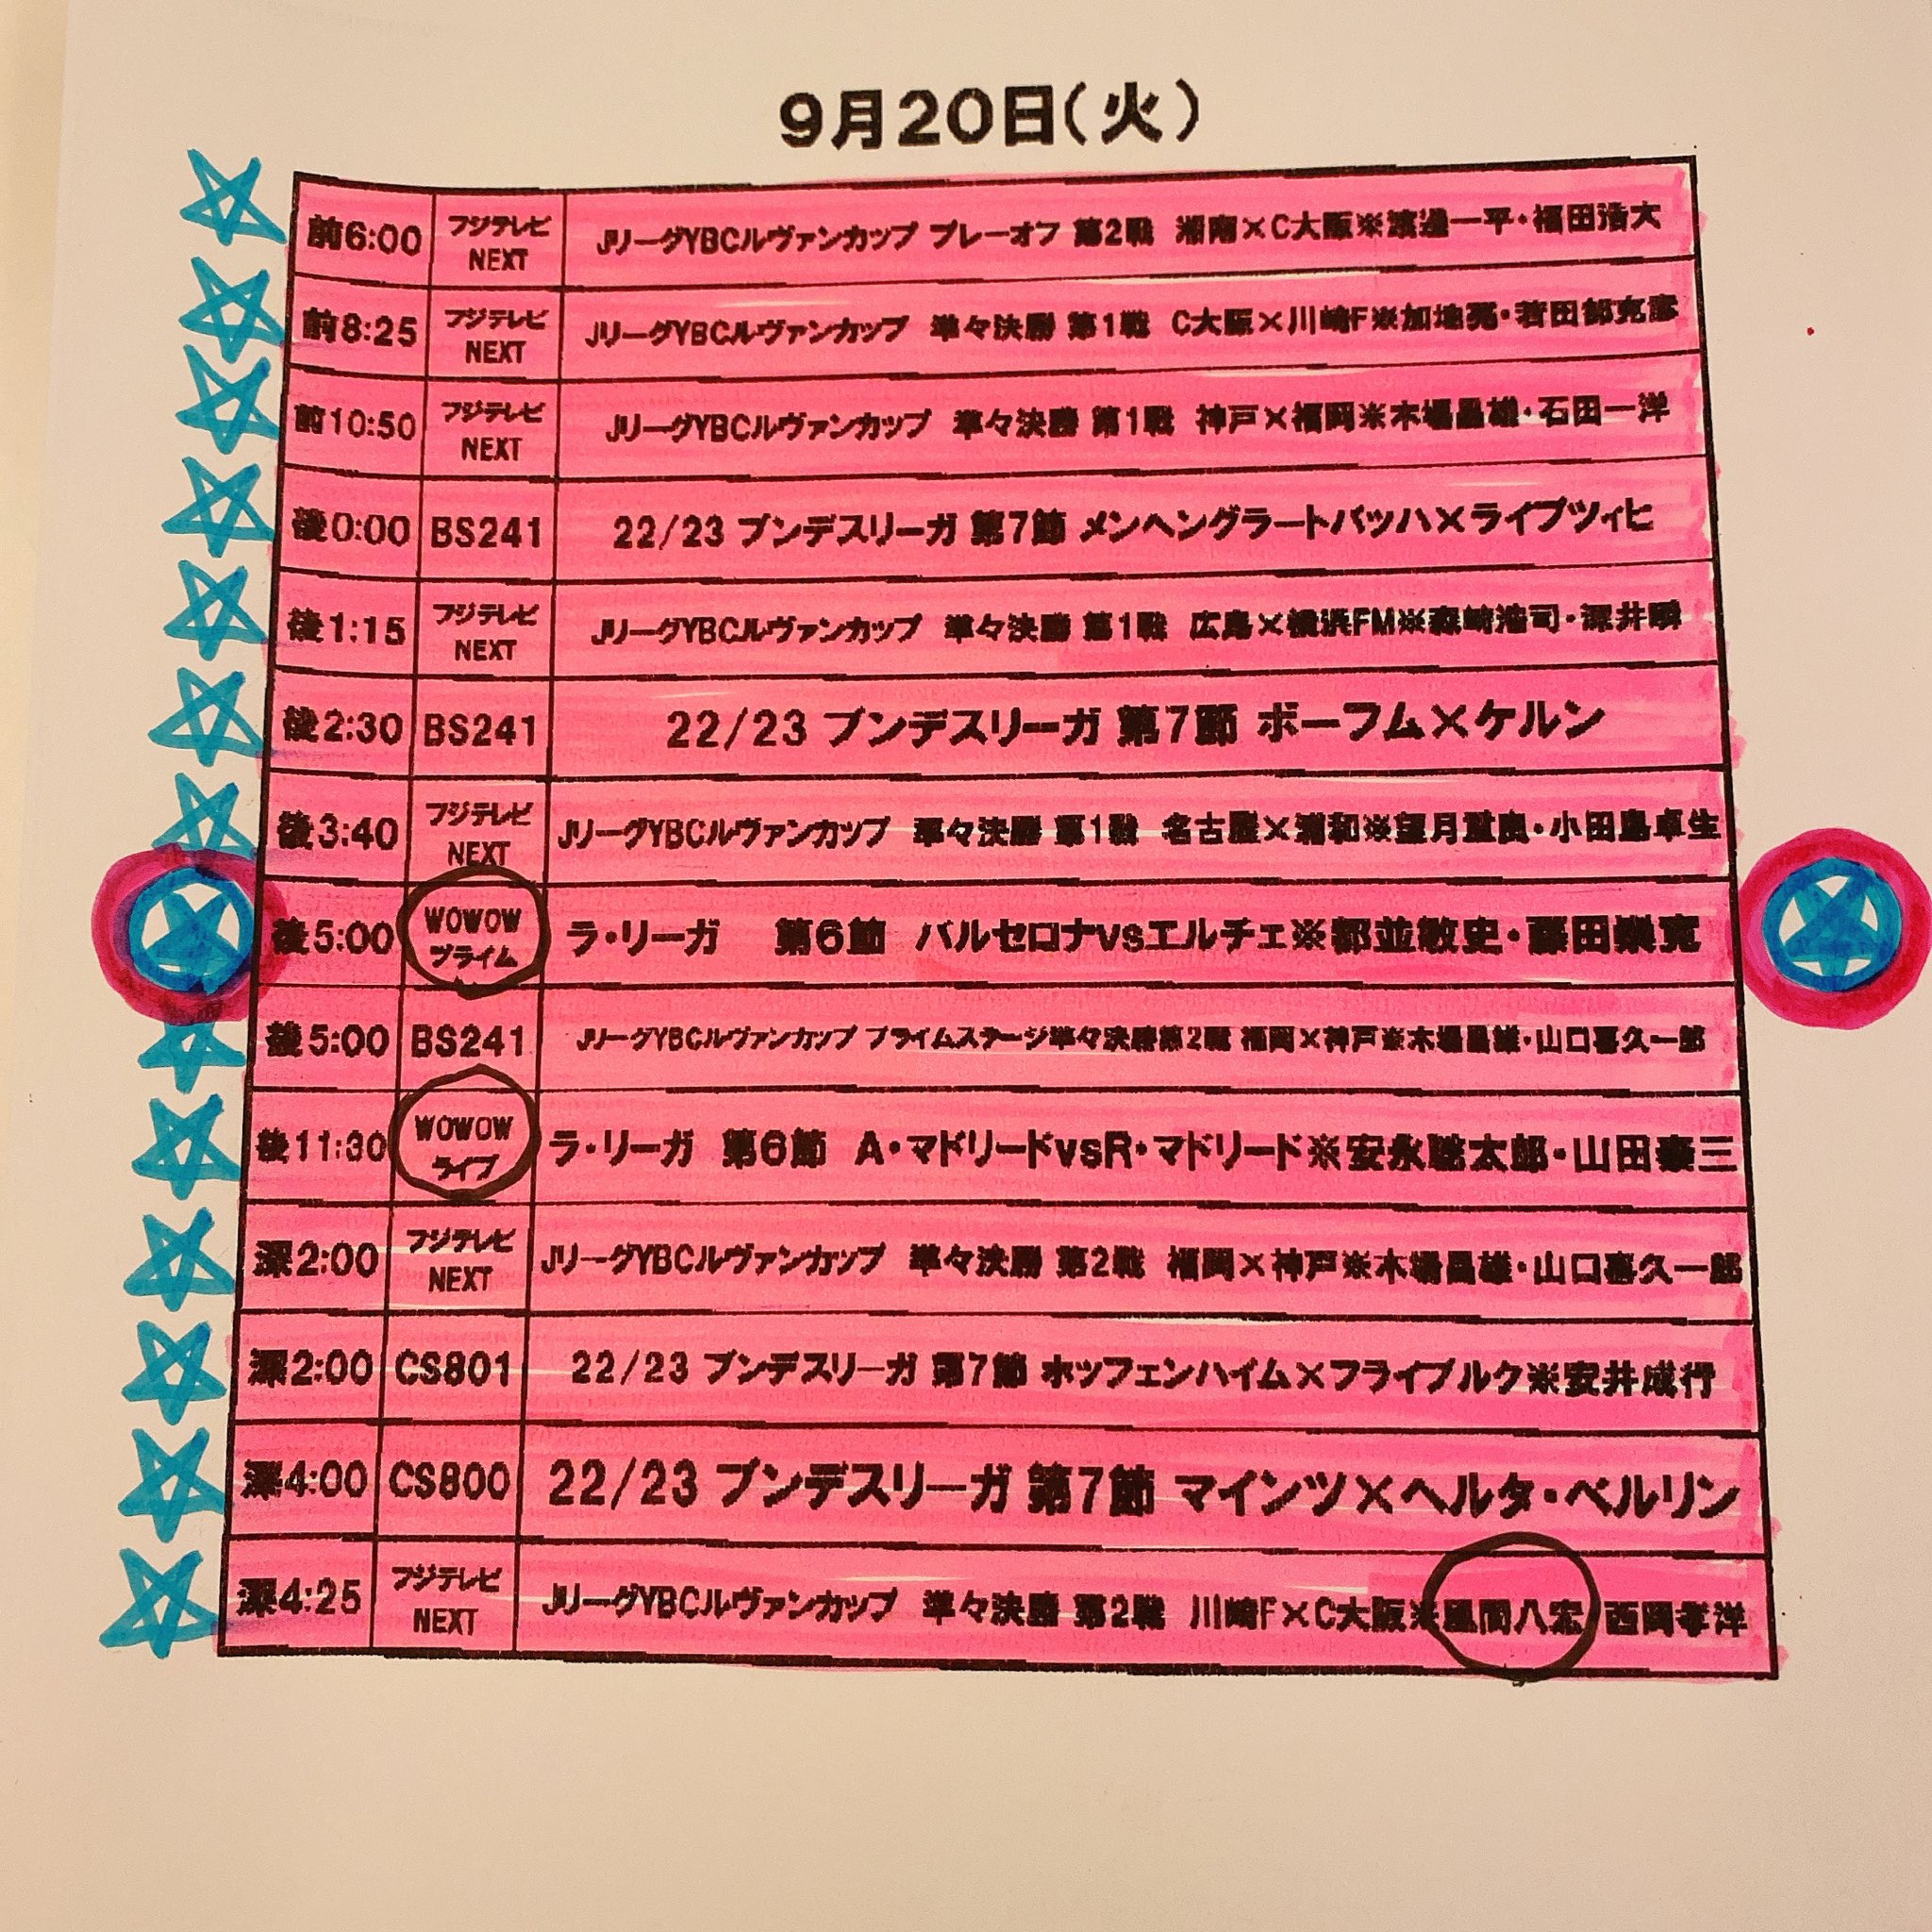 9月20日(火)
前6:00 フジテレビNEXT JリーグYBCルヴァンカップ プレーオフ 第2戦 湘南×C大阪※渡邉一平・福田浩大
前8:25 フジテレビNEXT JリーグYBCルヴァンカップ 準々決勝 第1戦 C大阪×川崎F※加地亮・若田部克彦
前10:50 フジテレビNEXT JリーグYBCルヴァンカップ 準々決勝 第1戦 神戸×福岡※木場昌雄・石田一洋
後0:00 BS241 22/23 ブンデスリーガ 第7節 メンヘングラートバッハ×ライプツィヒ
後1:15 フジテレビNEXT JリーグYBCルヴァンカップ 準々決勝 第1戦 広島×横浜FM※森崎浩司・深井瞬
後2:30 BS241 22/23 ブンデスリーガ 第7節 ボーフム×ケルン
後3:40 フジテレビNEXT JリーグYBCルヴァンカップ 準々決勝 第1戦 名古屋×浦和※望月重良・小田島卓生
後5:00 WOWOWプライム ラ・リーガ 第6節 バルセロナvsエルチェ※都並敏史・藤田崇寛
後5:00 BS241 JリーグYBCルヴァンカップ プライムステージ準々決勝第2戦 福岡×神戸※木場昌雄・山口喜久一郎
後11:30 WOWOWライブ ラ・リーガ 第6節 A・マドリードvsR・マドリード※安永聡太郎・山田泰三
深2:00 フジテレビNEXT JリーグYBCルヴァンカップ 準々決勝 第2戦 福岡×神戸※木場昌雄・山口喜久一郎
深2:00 CS801 22/23 ブンデスリーガ 第7節 ホッフェンハイム×フライブルク※安井成行
深4:00 CS800 22/23 ブンデスリーガ 第7節 マインツ×ヘルタ・ベルリン
深4:25 フジテレビNEXT JリーグYBCルヴァンカップ 準々決勝 第2戦 川崎F×C大阪※風間八宏 西岡孝洋